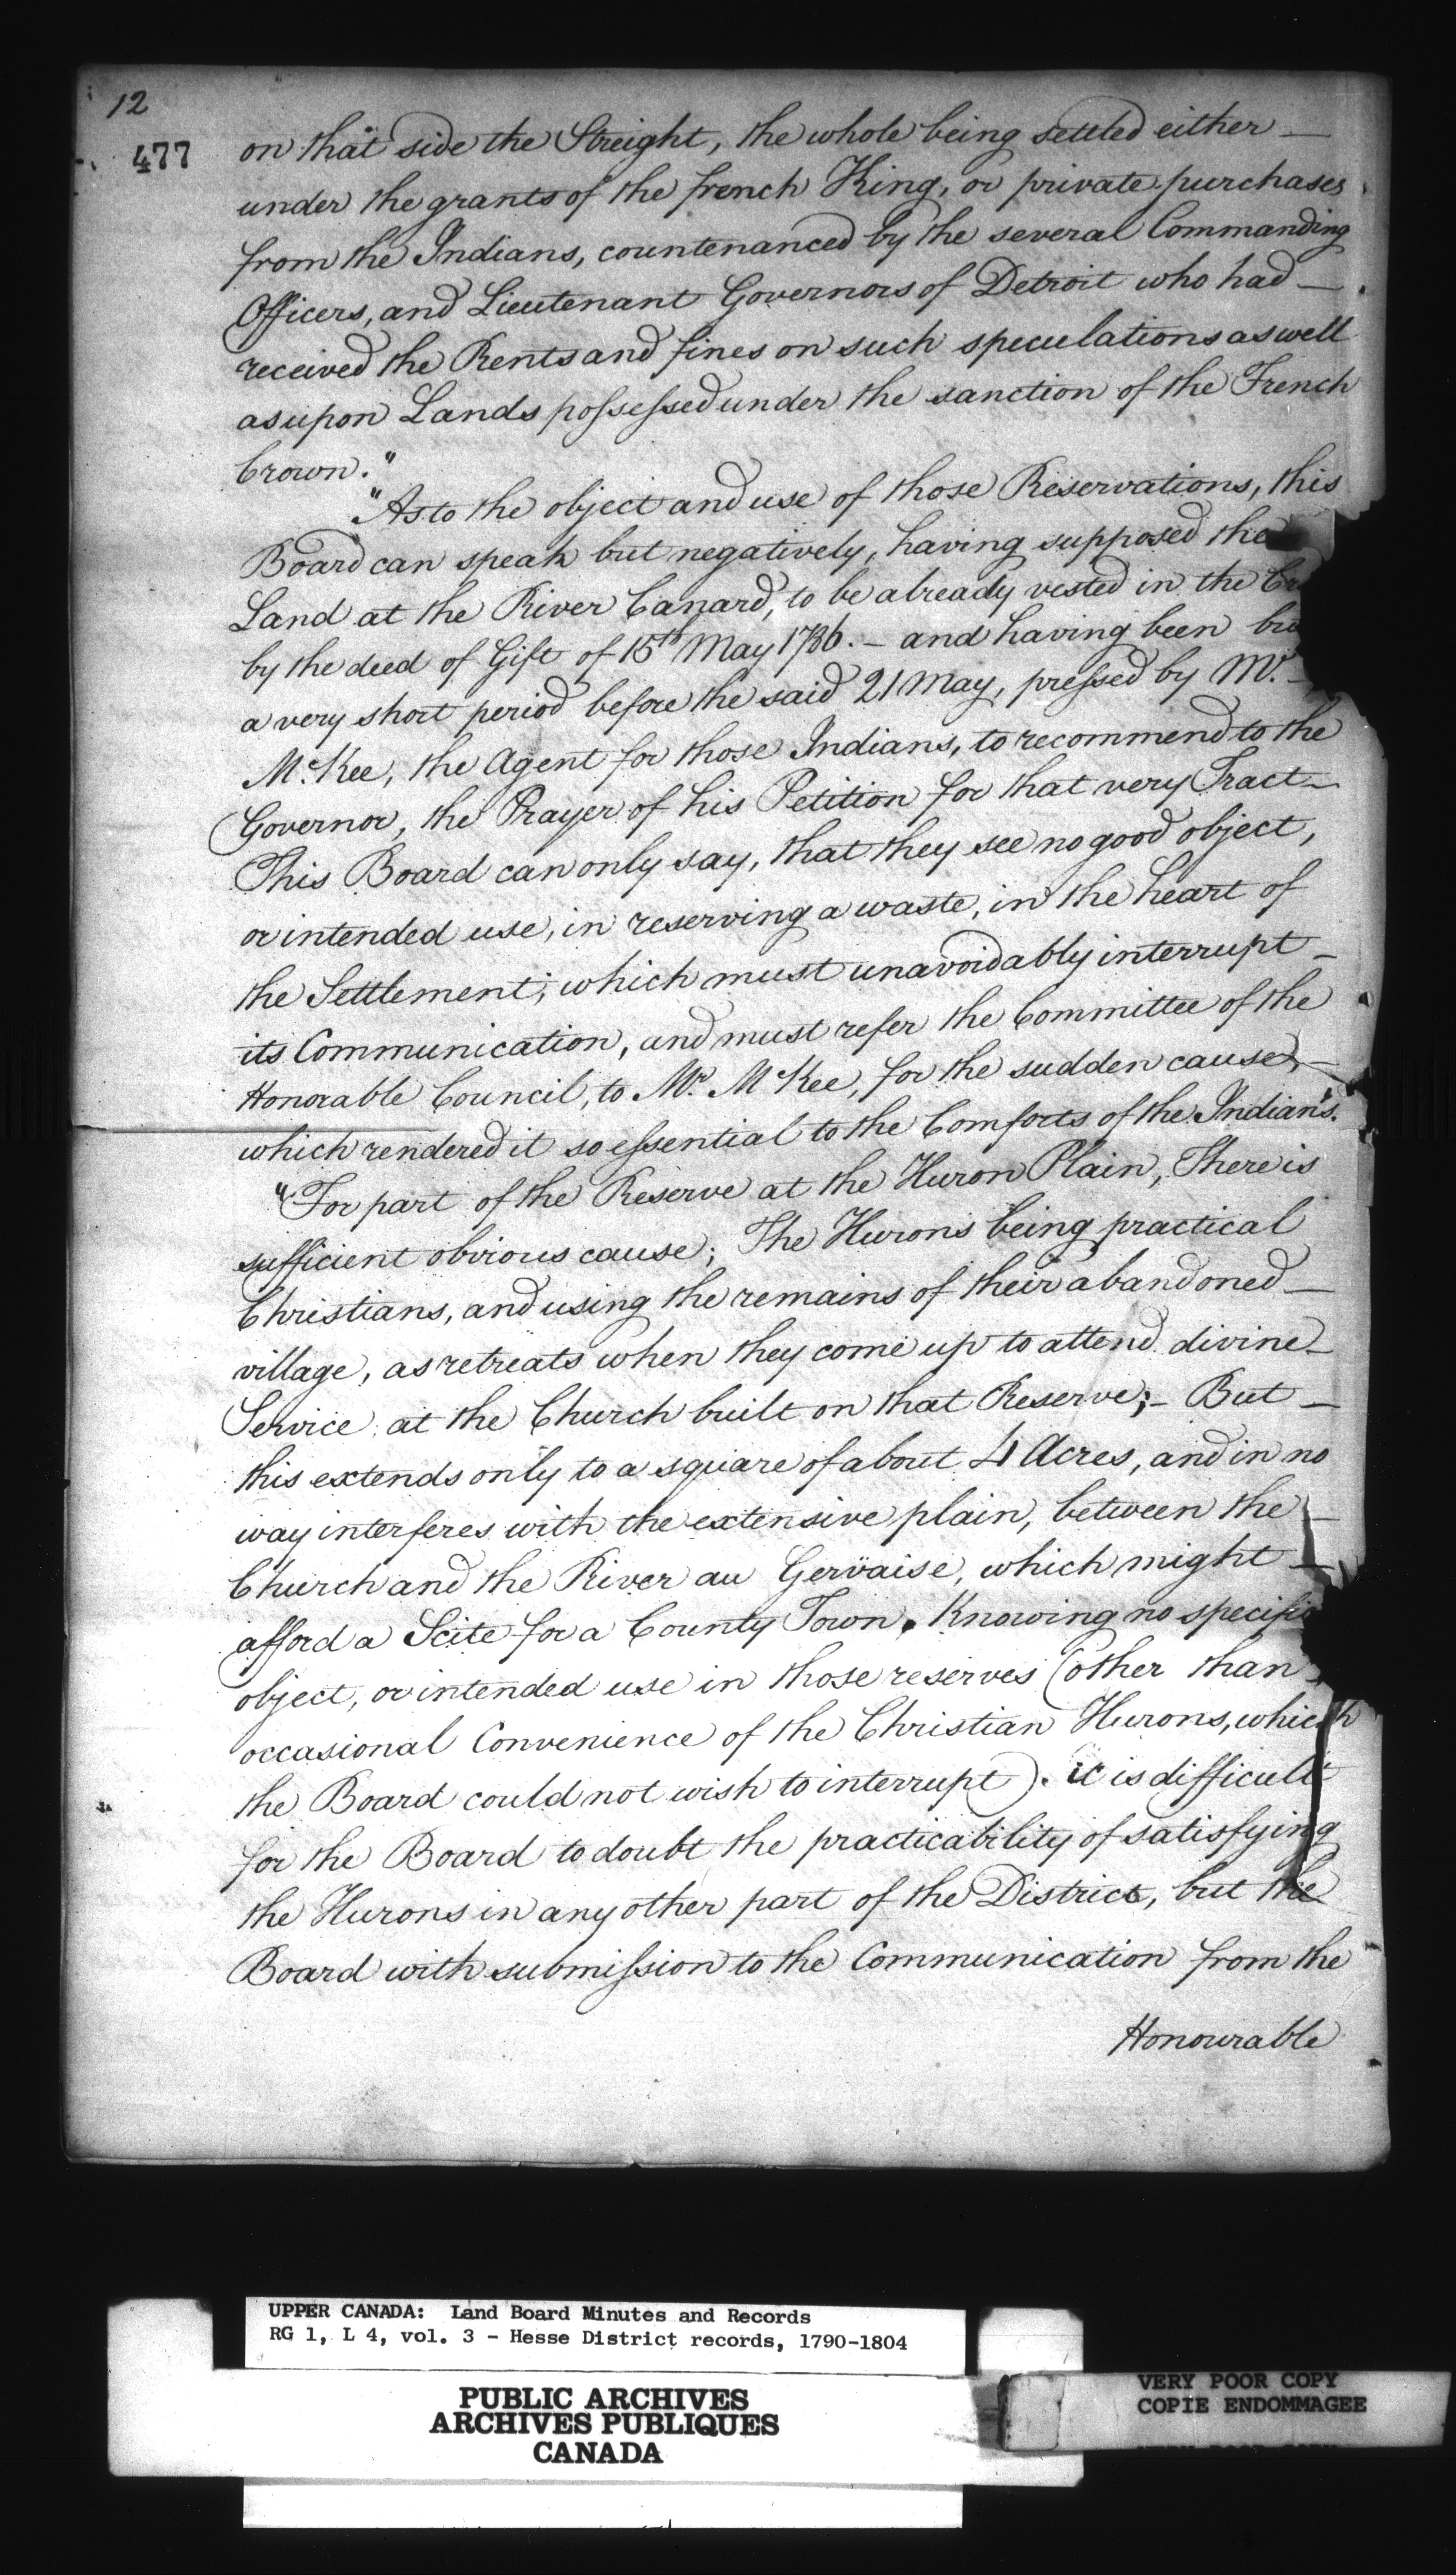 12
477
on that side the Streight, the whole being settled either —
under the grants of the french King, or private purchases
from the Indians, countenanced by the several Commanding
Officers, and Lieutenant Governors of Detroit who had —
received the Rents and fines on such speculations as well
as upon Lands possessed under the sanction of the French
Crown."
"As to the object and use of those Reservations, this
Board can speak but negatively, having supposed the
Land at the River Canard, to be already vested in the Cr
by the deed of Gift of 15th May 1786. – and having been bu
a very short period before the said 21 May, pressed by Mr. –
McKee, the Agent for those Indians, to recommend to the
Governor, the Prayer of his Petition for that very Tract –
This Board can only say, that they see no good object,
or intended use, in reserving a waste, in the heart of
the Settlement, which must unavoidably interrupt –
its Communication, and must refer the Committee of the
Honorable Council, to Mr. McKee, for the sudden cause, –
which rendered it so essential to the Comforts of the Indians."
"For part of the Reserve at the Huron Plain, There is
sufficient obvious cause; The Hurons being practical
Christians, and using the remains of their abandoned —
village, as retreats when they come up to attend divine –
Service at the Church built on that Reserve; – But –
this extends only to a square of about 4 Acres, and in no
way interferes with the extensive plain, between the –
Church and the River au Gervaise, which might –
afford a Scite for a County Town. Knowing no specific
object, or intended use in those reserves (other than
occasional Convenience of the Christian Hurons, which
the Board could not wish to interrupt). it is difficult
for the Board to doubt the practicability of satisfying
the Hurons in any other part of the District, but the
Board with submission to the Communication from the
Honourable
UPPER CANADA: Land Board Minutes and Records
RG 1, L 4, vol. 3 - Hesse District records, 1790-1804
PUBLIC ARCHIVES
ARCHIVES PUBLIQUES
CANADA
VERY POOR COPY
COPIE ENDOMMAGEE